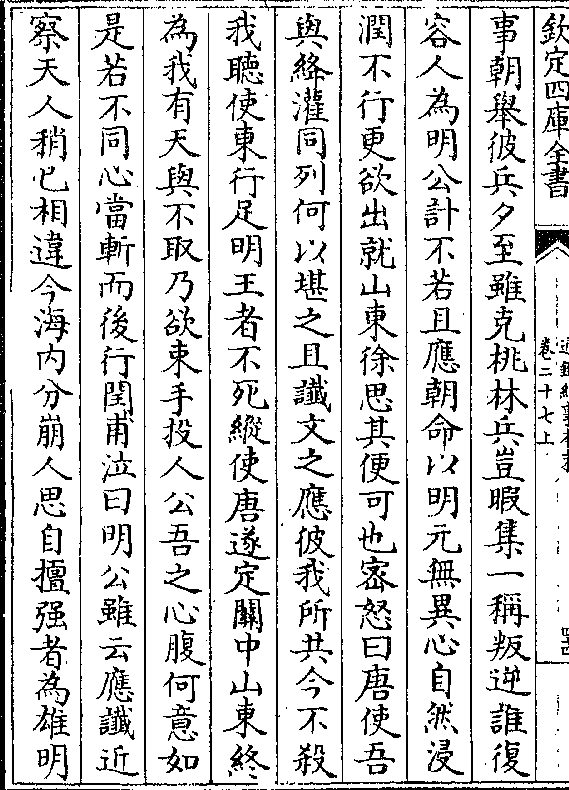 欽定四庫全書
卷二十七上
事朝舉彼兵夕至雖克桃林兵豈暇集一稱叛逆誰復
容人為明公計不若且應朝命以明元無異心自然浸
潤不行更欲出就山東徐思其便可也密怒曰唐使吾
與絳灌同列何以堪之且讖文之應彼我所共今不殺
我聽使東行足明王者不死縱使唐遂定關中山東終
為我有天與不取乃欲束手投人公吾之心腹何意如
是若不同心當斬而後行閏甫泣曰明公雖云應讖近
察天人稍已相違今海内分崩人思自擅强者為雄明